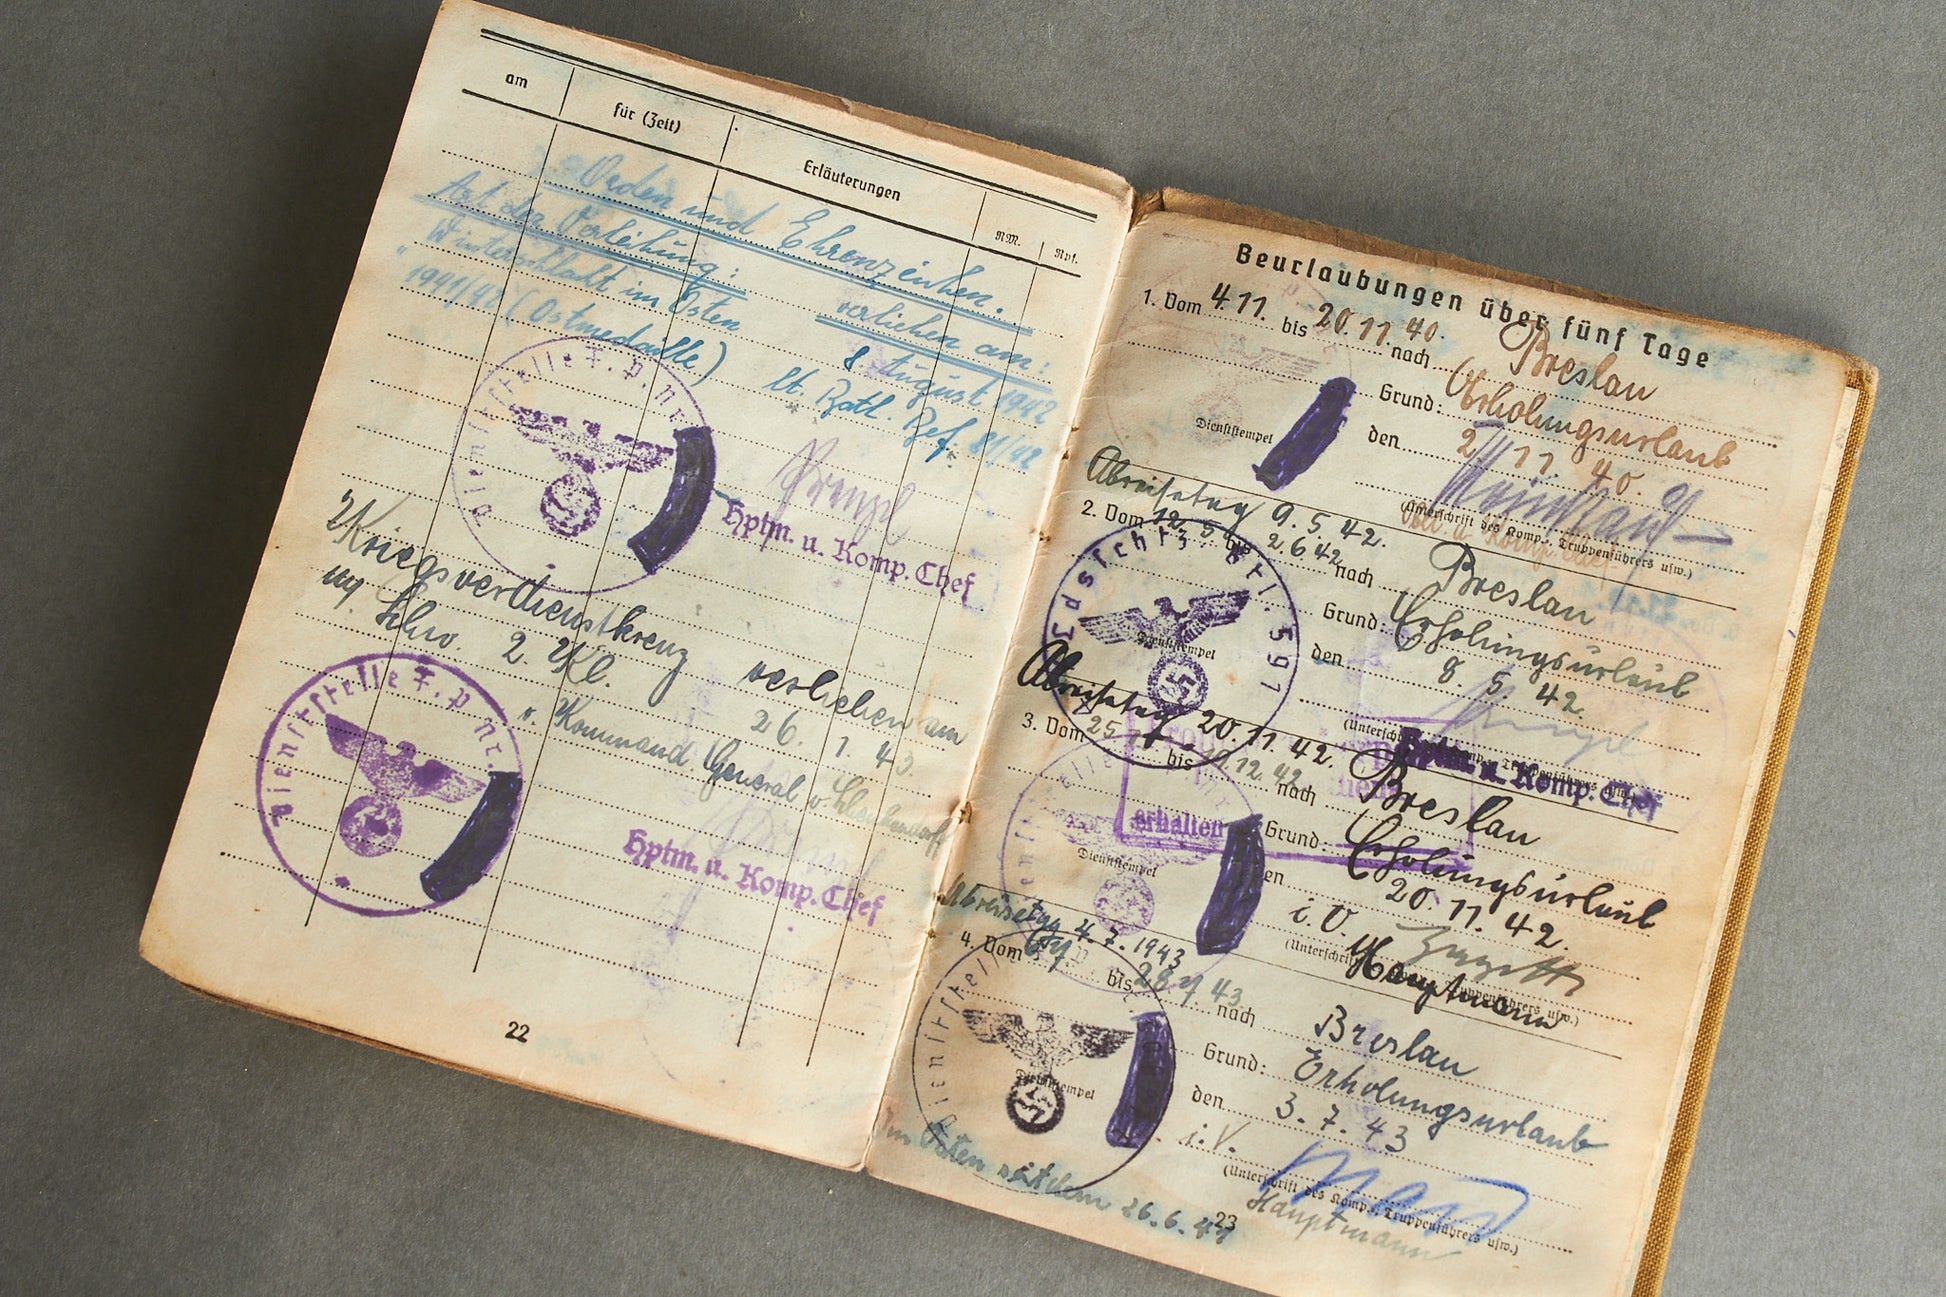 am für (Zeit) Erläuterungen RM. Rpf.
Orden und Ehrenzeichen.
Art der Verleihung: verliehen am:
"Winterschlacht im Osten 8. August 1942
1941/42 (Ostmedaille) lt. Batl. Bef. 81/42
Dienststelle F. P. Nr.
Hptm. u. Komp. Chef
Kriegsverdienstkreuz verliehen am
m/ Schw. 2. Kl. 26. 1. 43.
v. Kommand. General v.
Dienststelle F. P. Nr.
Hptm. u. Komp. Chef
22
Beurlaubungen über fünf Tage
1. Vom 4.11. bis 20.11.40. nach Breslau
Grund: Erholungsurlaub
Dienststempel den 2. 11. 40.
(Unterschrift des Komp.-, Truppenführers usw.)
Abreisetag 9. 5. 42.
2. Vom 12. 5. bis 2. 6 42 nach Breslau
Grund: Erholungsurlaub
Ldsschtz. Btl. 591
Dienststempel den 8. 5. 42.
Hptm. u. Komp. Chef
Abreisetag 20. 11. 42.
3. Vom 25. bis 12. 42 nach Breslau
erhalten
Grund: Erholungsurlaub
Dienststempel den 20. 11. 42.
i. V.
Hauptmann
Abreisetag 4. 7. 1943
4. Vom bis 28 7 43 nach Breslau
Grund: Erholungsurlaub
Dienststelle F. P.
Dienststempel den 3. 7. 43
i. V.
(Unterschrift des Komp.-, Truppenführers usw.)
Hauptmann
Im Osten seit dem 26. 6. 41
23